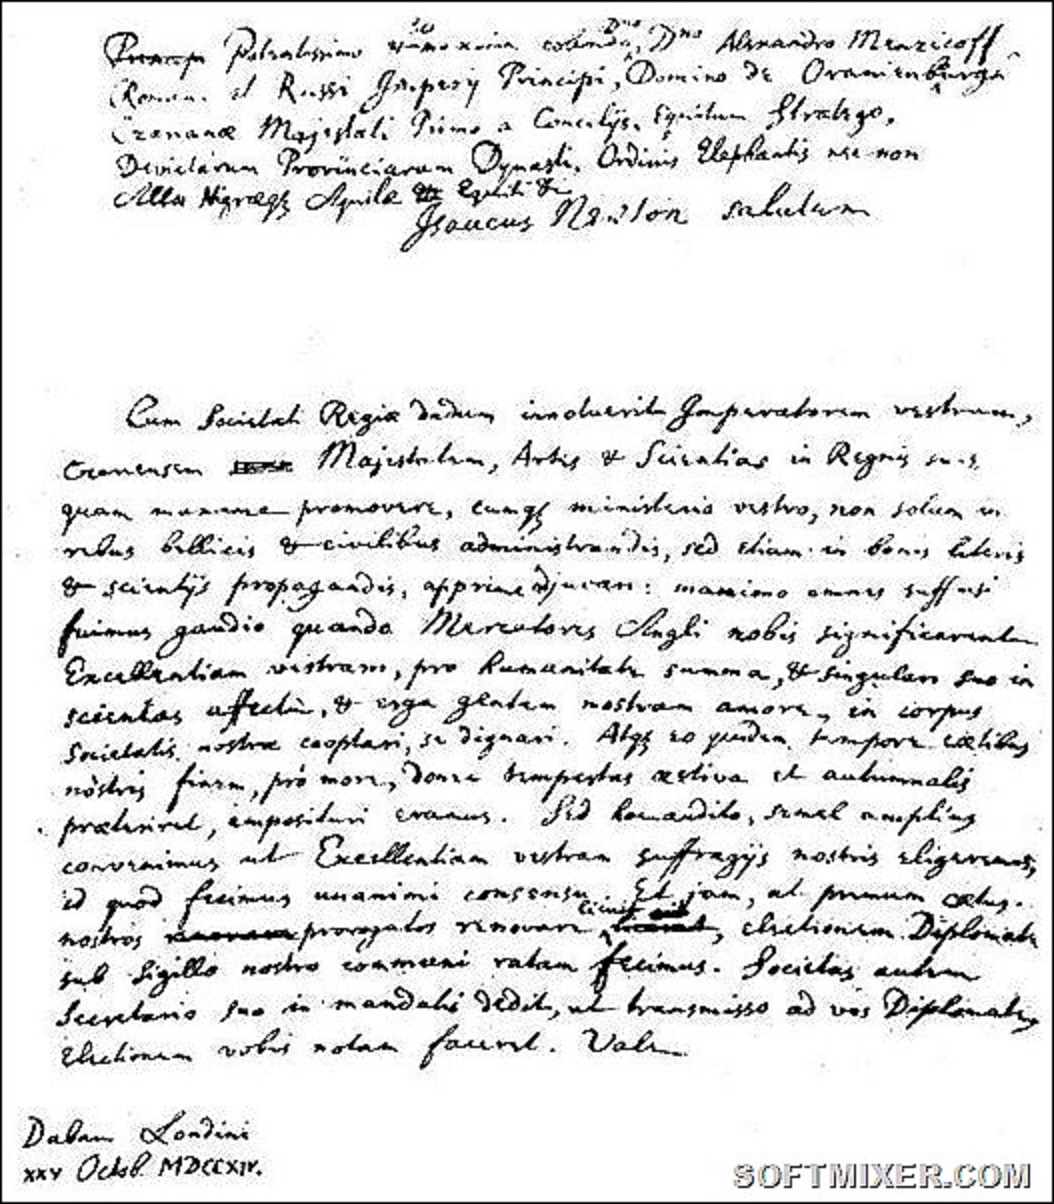 Potentissimo maxime colendo, Dno Alexandro Menzicoff
Roman. et Russi Imperij Principi, Domino de Oranienburgh
Czareanæ Majestati Primo a Concilijs, Equitum Stratego,
Devictarum Provinciarum Dynasti, Ordinis Elephantis nec non
Albæ Nigræqȝ Aquilæ Equiti &c
Isaacus Newton salutem
Cum Societati Regiæ dudum innotuerit Imperatorem vestrum,
Czareensem Majestatem, Artes & Scientias in Regnis suis
quam maxime promovere, eumqȝ ministerio vestro, non solum in
rebus bellicis & civilibus administrandis, sed etiam in bonis literis
& scientijs propagandis, apprime adjuvari: maximo omnes suffusi
fuimus gaudio quando Mercatores Angli nobis significarent
Excellentiam vestram, pro humanitate summa, & singulari suo in
scientias affectu, & erga gentem nostram amore, in corpus
Societatis nostræ cooptari, se dignari. Atqȝ eo quidem tempore cœtibus
nostris finem, pro more, donec tempestas æstiva et autumnalis
præteriret, imposituri eramus. Sed hoc audito, semel amplius
convenimus ut Excellentiam vestram suffragijs nostris eligeremus,
id quod fecimus unanimi consensu. Et jam, ut primum cœtus
nostros prorogatos renovare licuit, electionem Diplomate
sub sigillo nostro communi ratam fecimus. Societas autem
Secretario suo in mandatis dedit, ut transmisso ad vos Diplomate,
Electionem vobis notam faceret. Vale
Dabam Londini
xxv Octob. MDCCXIV.
SOFTMIXER.COM